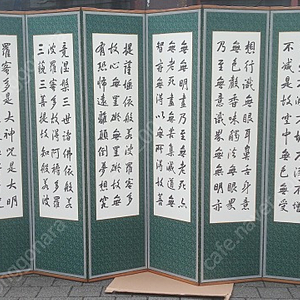 不減是故空中無色無受
想行識無眼耳鼻舌身意
無色聲香味觸法無眼界
乃至無意識界無無明亦
無無明盡乃至無老死亦
無老死盡無苦集滅道無
智亦無得以無所得故菩
提薩埵依般若波羅蜜多
故心無罣礙無罣礙故無
有恐怖遠離顛倒夢想究
竟涅槃三世諸佛依般若
波羅蜜多故得阿耨多羅
三藐三菩提故知般若波
羅蜜多是大神呪是大明
onggonara
cafe.naver